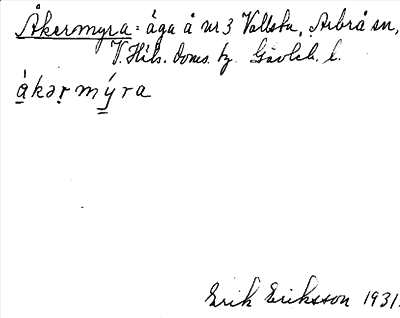 Åkermyra = äga å nr 3 Vallsta, Arbrå sn,
V. Häls. doms. tg. Gävleb. l.
á̱kər̥ m ý̳ra
Erik Eriksson 1931.